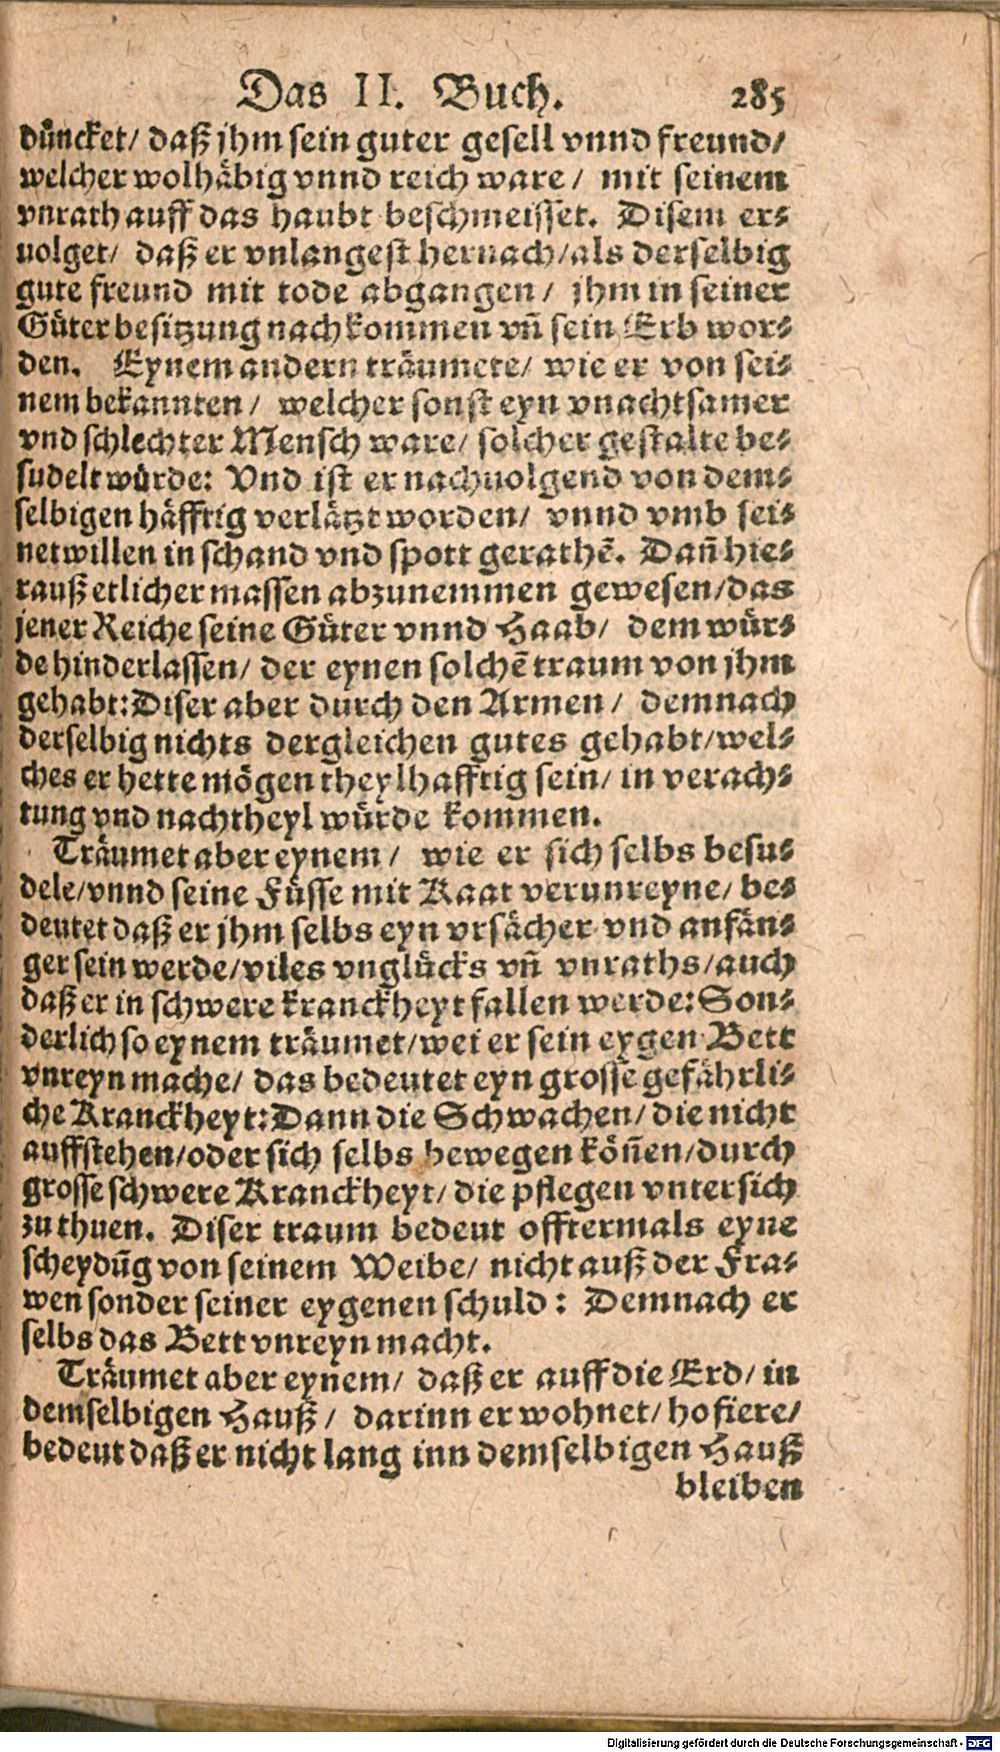 Das II. Buch. 285
důncket/ daß jhm sein guter gesell vnnd freund/
welcher wolhäbig vnnd reich ware/ mit seinem
vnrath auff das haubt beschmeisset. Disem er⸗
uolget/ daß er vnlangest hernach/ als derselbig
gute freund mit tode abgangen/ jhm in seiner
Güter besitzung nachkommen vñ sein Erb wor⸗
den. Eynem andern träumete/ wie er von sei⸗
nem bekannten/ welcher sonst eyn vnachtsamer
vnd schlechter Mensch ware/ solcher gestalte be⸗
sudelt würde: Vnd ist er nachuolgend von dem⸗
selbigen häfftig verlätzt worden/ vnnd vmb sei⸗
net willen in schand vnd spott gerathẽ. Dañ hie⸗
rauß etlicher massen abzunemmen gewesen/ das
jener Reiche seine Güter vnnd Haab/ dem wür⸗
de hinderlassen/ der eynen solchẽ traum von jhm
gehabt: Diser aber durch den Armen/ demnach
derselbig nichts dergleichen gutes gehabt/ wel⸗
ches er hette mögen theylhafftig sein/ in verach⸗
tung vnd nachtheyl würde kommen.
Träumet aber eynem/ wie er sich selbs besu⸗
dele/ vnnd seine Füsse mit Kaat verunreyne/ be⸗
deutet daß er jhm selbs eyn vrsächer vnd anfän⸗
ger sein werde/ viles vnglücks vñ vnraths/ auch
daß er in schwere kranckheyt fallen werde: Son⸗
derlich so eynem träumet/ wei er sein eygen Bett
vnreyn mache/ das bedeutet eyn grosse gefährli⸗
che Kranckheyt: Dann die Schwachen/ die nicht
auffstehen/ oder sich selbs bewegen köñen/ durch
grosse schwere Kranckheyt/ die pflegen vnter sich
zu thuen. Diser traum bedeut offtermals eyne
scheydũg von seinem Weibe/ nicht auß der Fra⸗
wen sonder seiner eygenen schuld: Demnach er
selbs das Bett vnreyn macht.
Träumet aber eynem/ daß er auff die Erd/ in
demselbigen Hauß/ darinn er wohnet/ hofiere/
bedeut daß er nicht lang inn demselbigen Hauß
bleiben
Digitalisierung gefördert durch die Deutsche Forschungsgemeinschaft - DFG